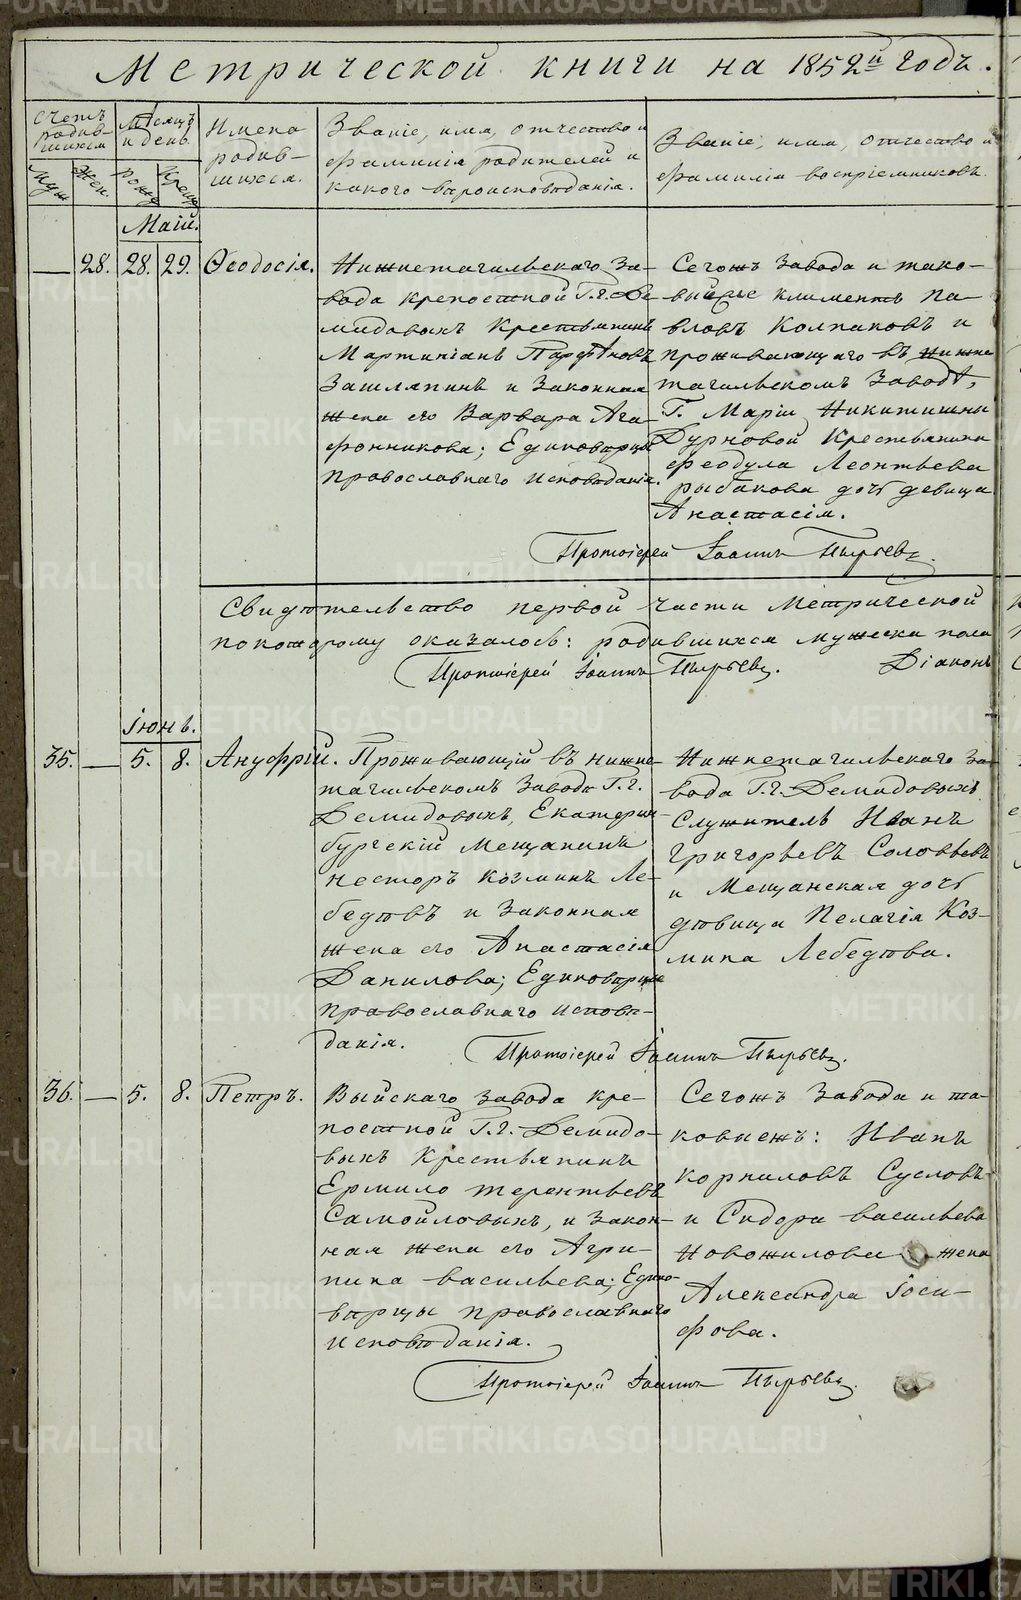 Метрической книги на 1852й годъ.
Счетъ родив-шихся
Мѣсяцъ и день.
Имена родив-шихся.
Званіе, имя, отчество и фамилія родителей и какого вѣроисповѣданія.
Званіе, имя, отчество и фамилія воспріемниковъ.
Муж.
Жен.
Рожд.
Крещ.
Маій.
28. 28. 29. Ѳеодосія.
Нижнетагильскаго За-
вода крепостной Г.г. Де-
мидовыхъ Крестьянинъ
Мартиніанъ Парфѣновъ
Зашляпинъ и Законная
жена его Варвара Ага-
фонникова; Единоварцы
Православнаго исповѣданія.
Сегожъ Завода и тако-
выйже климентъ Па-
вловъ Колпаковъ и
проживающаго въ нижне
тагильскомъ Заводѣ,
Г. Маріи Никитишны
Дурновой Крестьянина
феодула Леонтьева
рыбакова дочь девица
Анастасія.
Протоіерей Іоаннъ Пырьевъ.
Свидѣтельство первой части Метрической
по которому оказалось: родившихся мужеска пола
Протоіерей Іоаннъ Пырьевъ. Діаконъ
Іюнь.
35. 5. 8. Ануфрій.
Проживающій въ нижне-
тагильскомъ Заводѣ Г.г.
Демидовыхъ, Екатерин-
бургскій Мещанинъ
несторъ козминъ Ле-
бедѣвъ и Законная
жена его Анастасія
Данилова; Единоварцы
православнаго исповѣ-
данія.
Нижнетагильскаго за-
вода Г.г. Демидовыхъ
Служитель Иванъ
Григорьевъ Соловьевъ
и Мещанская дочь
дѣвица Пелагія Коз-
мина Лебедѣва.
Протоіерей Іоаннъ Пырьевъ.
36. 5. 8. Петръ.
Выйскаго завода кре-
постной Г.г. Демидо-
выхъ Крестьянинъ
Ермило терентьевъ
Самойловыхъ, и закон-
ная жена его Агри-
пина васильева; Едино-
варцы православнаго
исповѣданія.
Сегожъ Завода и та-
ковыежъ: Иванъ
корниловъ Сусловъ
и Сидора васильева
Новожилова жена
Александра Іоси-
фова.
Протоіерей Іоаннъ Пырьевъ.
METRIKI.GASO-URAL.RU